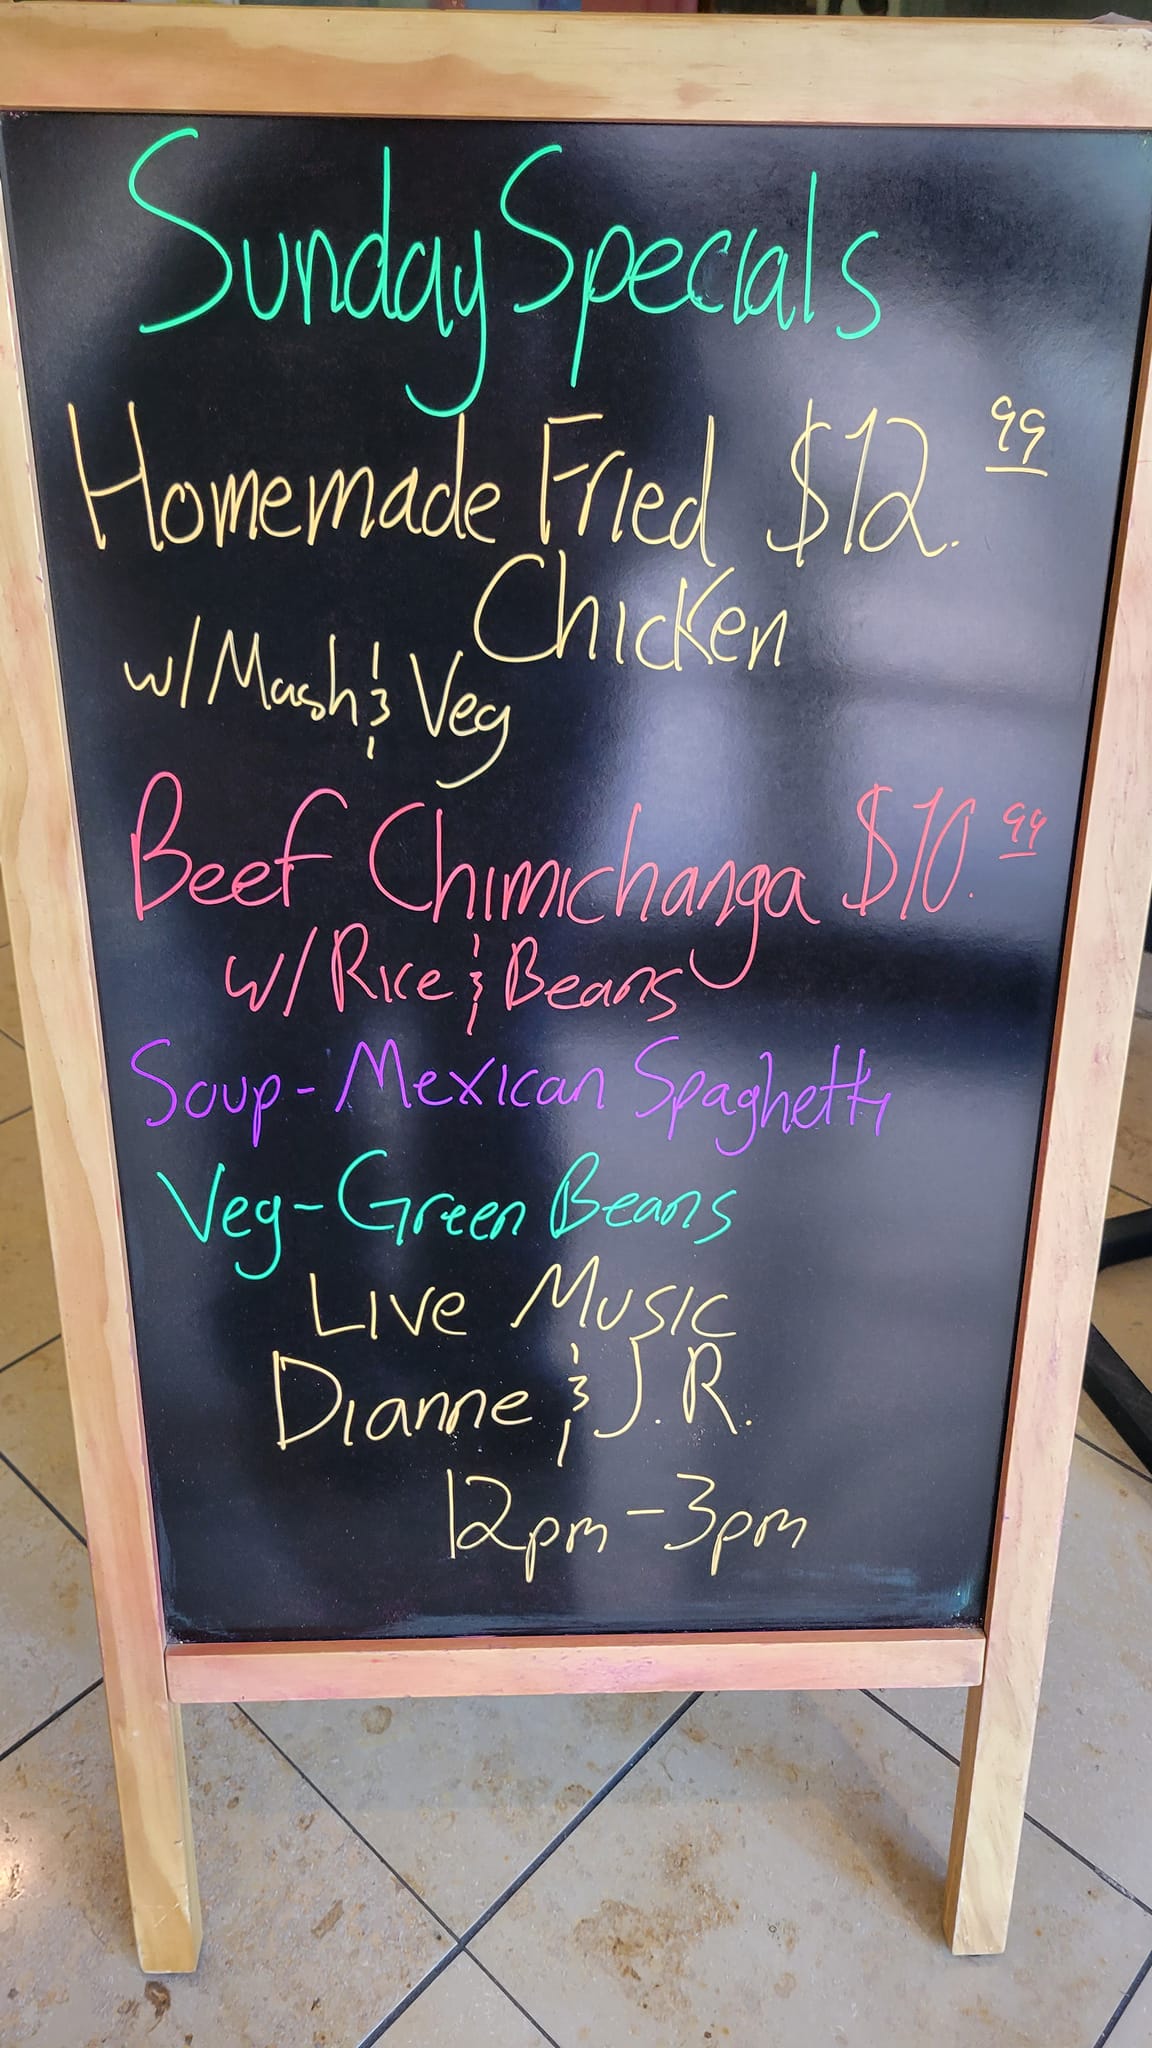 Sunday Specials
Homemade Fried $12.99
Chicken
w/ Mash & Veg
Beef Chimichanga $10.99
w/ Rice & Beans
Soup - Mexican Spaghetti
Veg - Green Beans
Live Music
Dianne & J.R.
12pm - 3pm